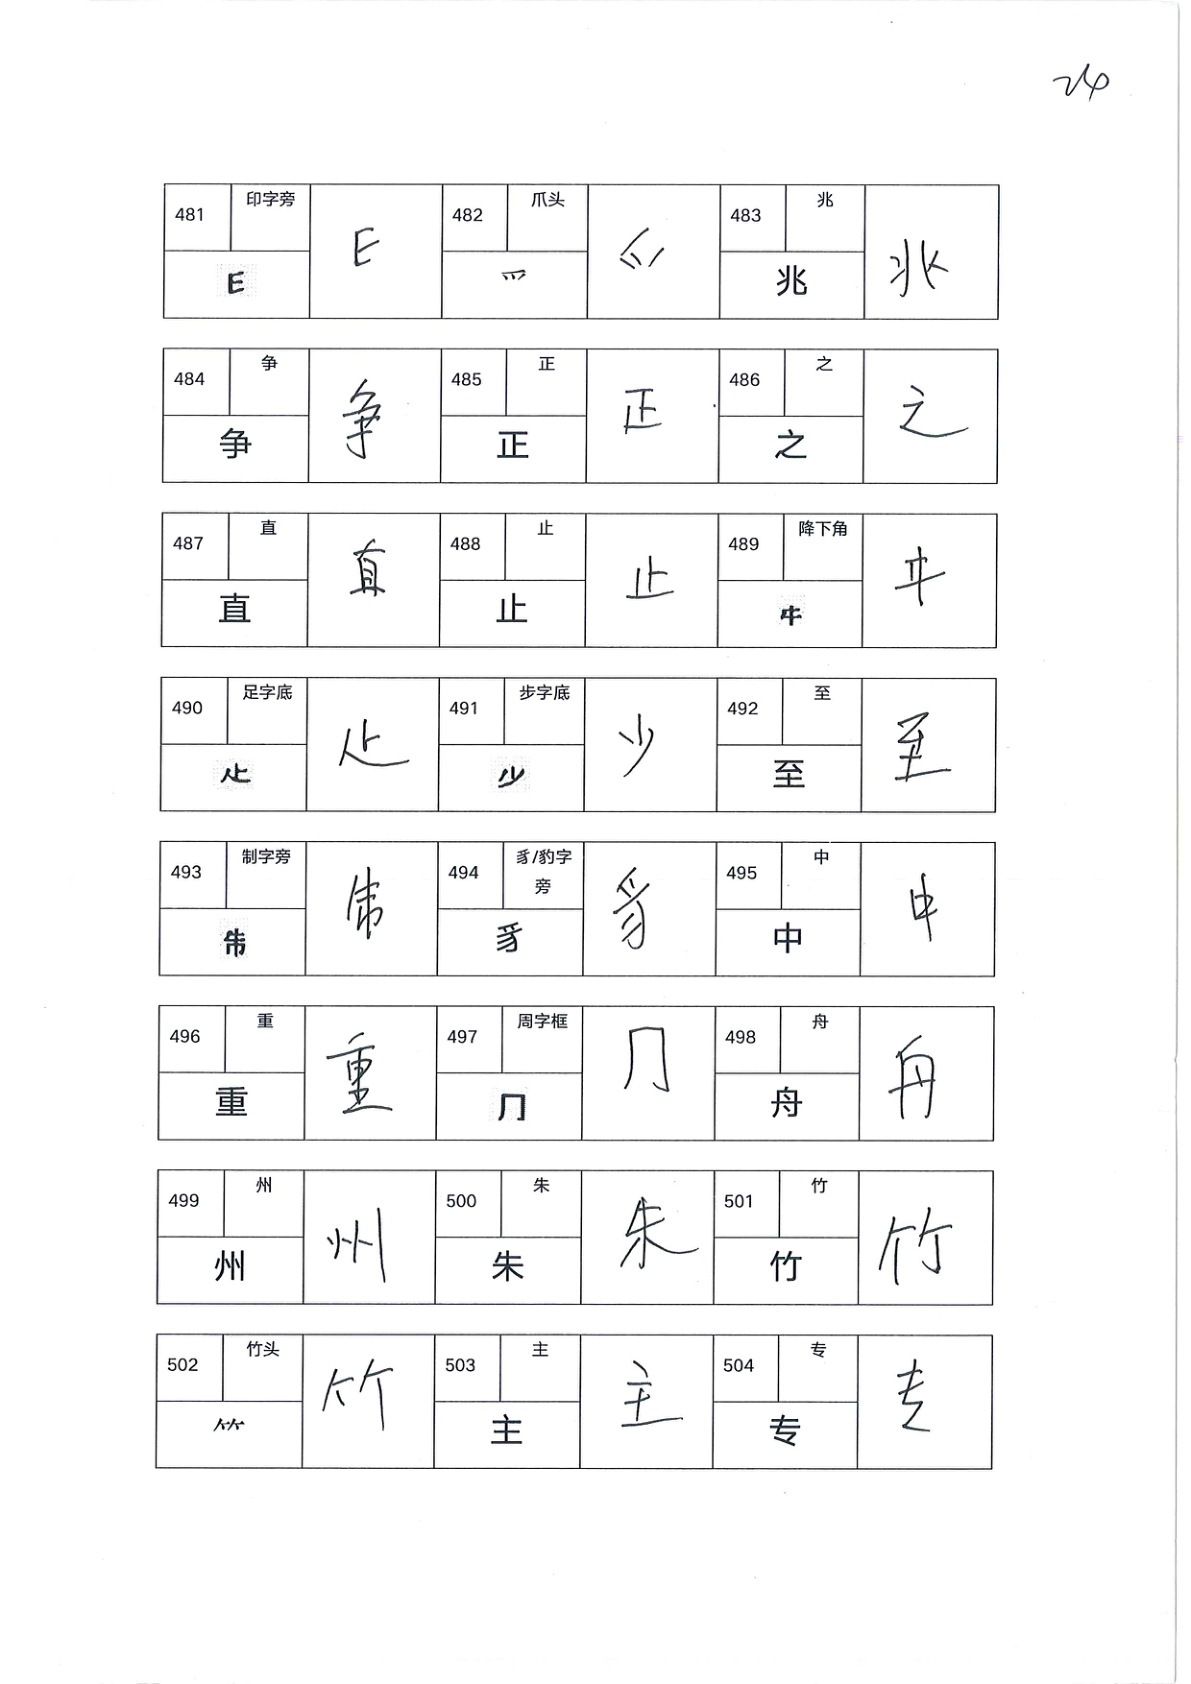 24
481 印字旁 482 爪头 483 兆
兆 兆
484 争 争 485 正 正 486 之 之
争 正 之
487 直 直 488 止 止 489 降下角
直 止
490 足字底 491 步字底 492 至 至
至
493 制字旁 494 豸/豹字旁 豸 495 中 中
豸 中
496 重 重 497 周字框 498 舟 舟
重 ⺆ ⺆ 舟
499 州 州 500 朱 朱 501 竹 竹
州 朱 竹
502 竹头 503 主 主 504 专 专
⺮ ⺮ 主 专